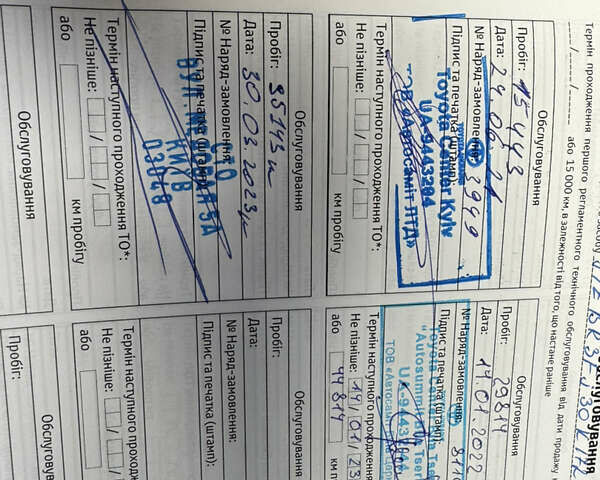 Термін проходження першого регламентного технічного обслуговування від дати продажу
або 15 000 км, в залежності від того, що настане раніше
обслуговування
Обслуговування
Пробіг: 15443
Дата: 24.06.21
№ Наряд-замовлення: 3949
Підпис та печатка (штамп):
Toyota Center Kyiv
UA-9443204
ТОВ «Автосаміт ЛТД»
Термін наступного проходження ТО*:
Не пізніше:
або
км пробігу
Обслуговування
Пробіг: 29814
Дата: 14.01.2022
№ Наряд-замовлення:
Підпис та печатка (штамп):
"Autosummit
ТОВ
Термін наступного проходження
Не пізніше: 14/01/23
або 44814
Обслуговування
Пробіг: 35143
Дата: 30.03.2023
№ Наряд-замовлення:
СТО
Підпис та печатка (штамп):
КИЇВ
03048
Термін наступного проходження ТО*:
Не пізніше:
або
км пробігу
Обслуговування
Пробіг:
Дата:
№ Наряд-замовлення:
Підпис та печатка (штамп):
Термін наступного проходження
Не пізніше:
або
Обслуговування
Пробіг: